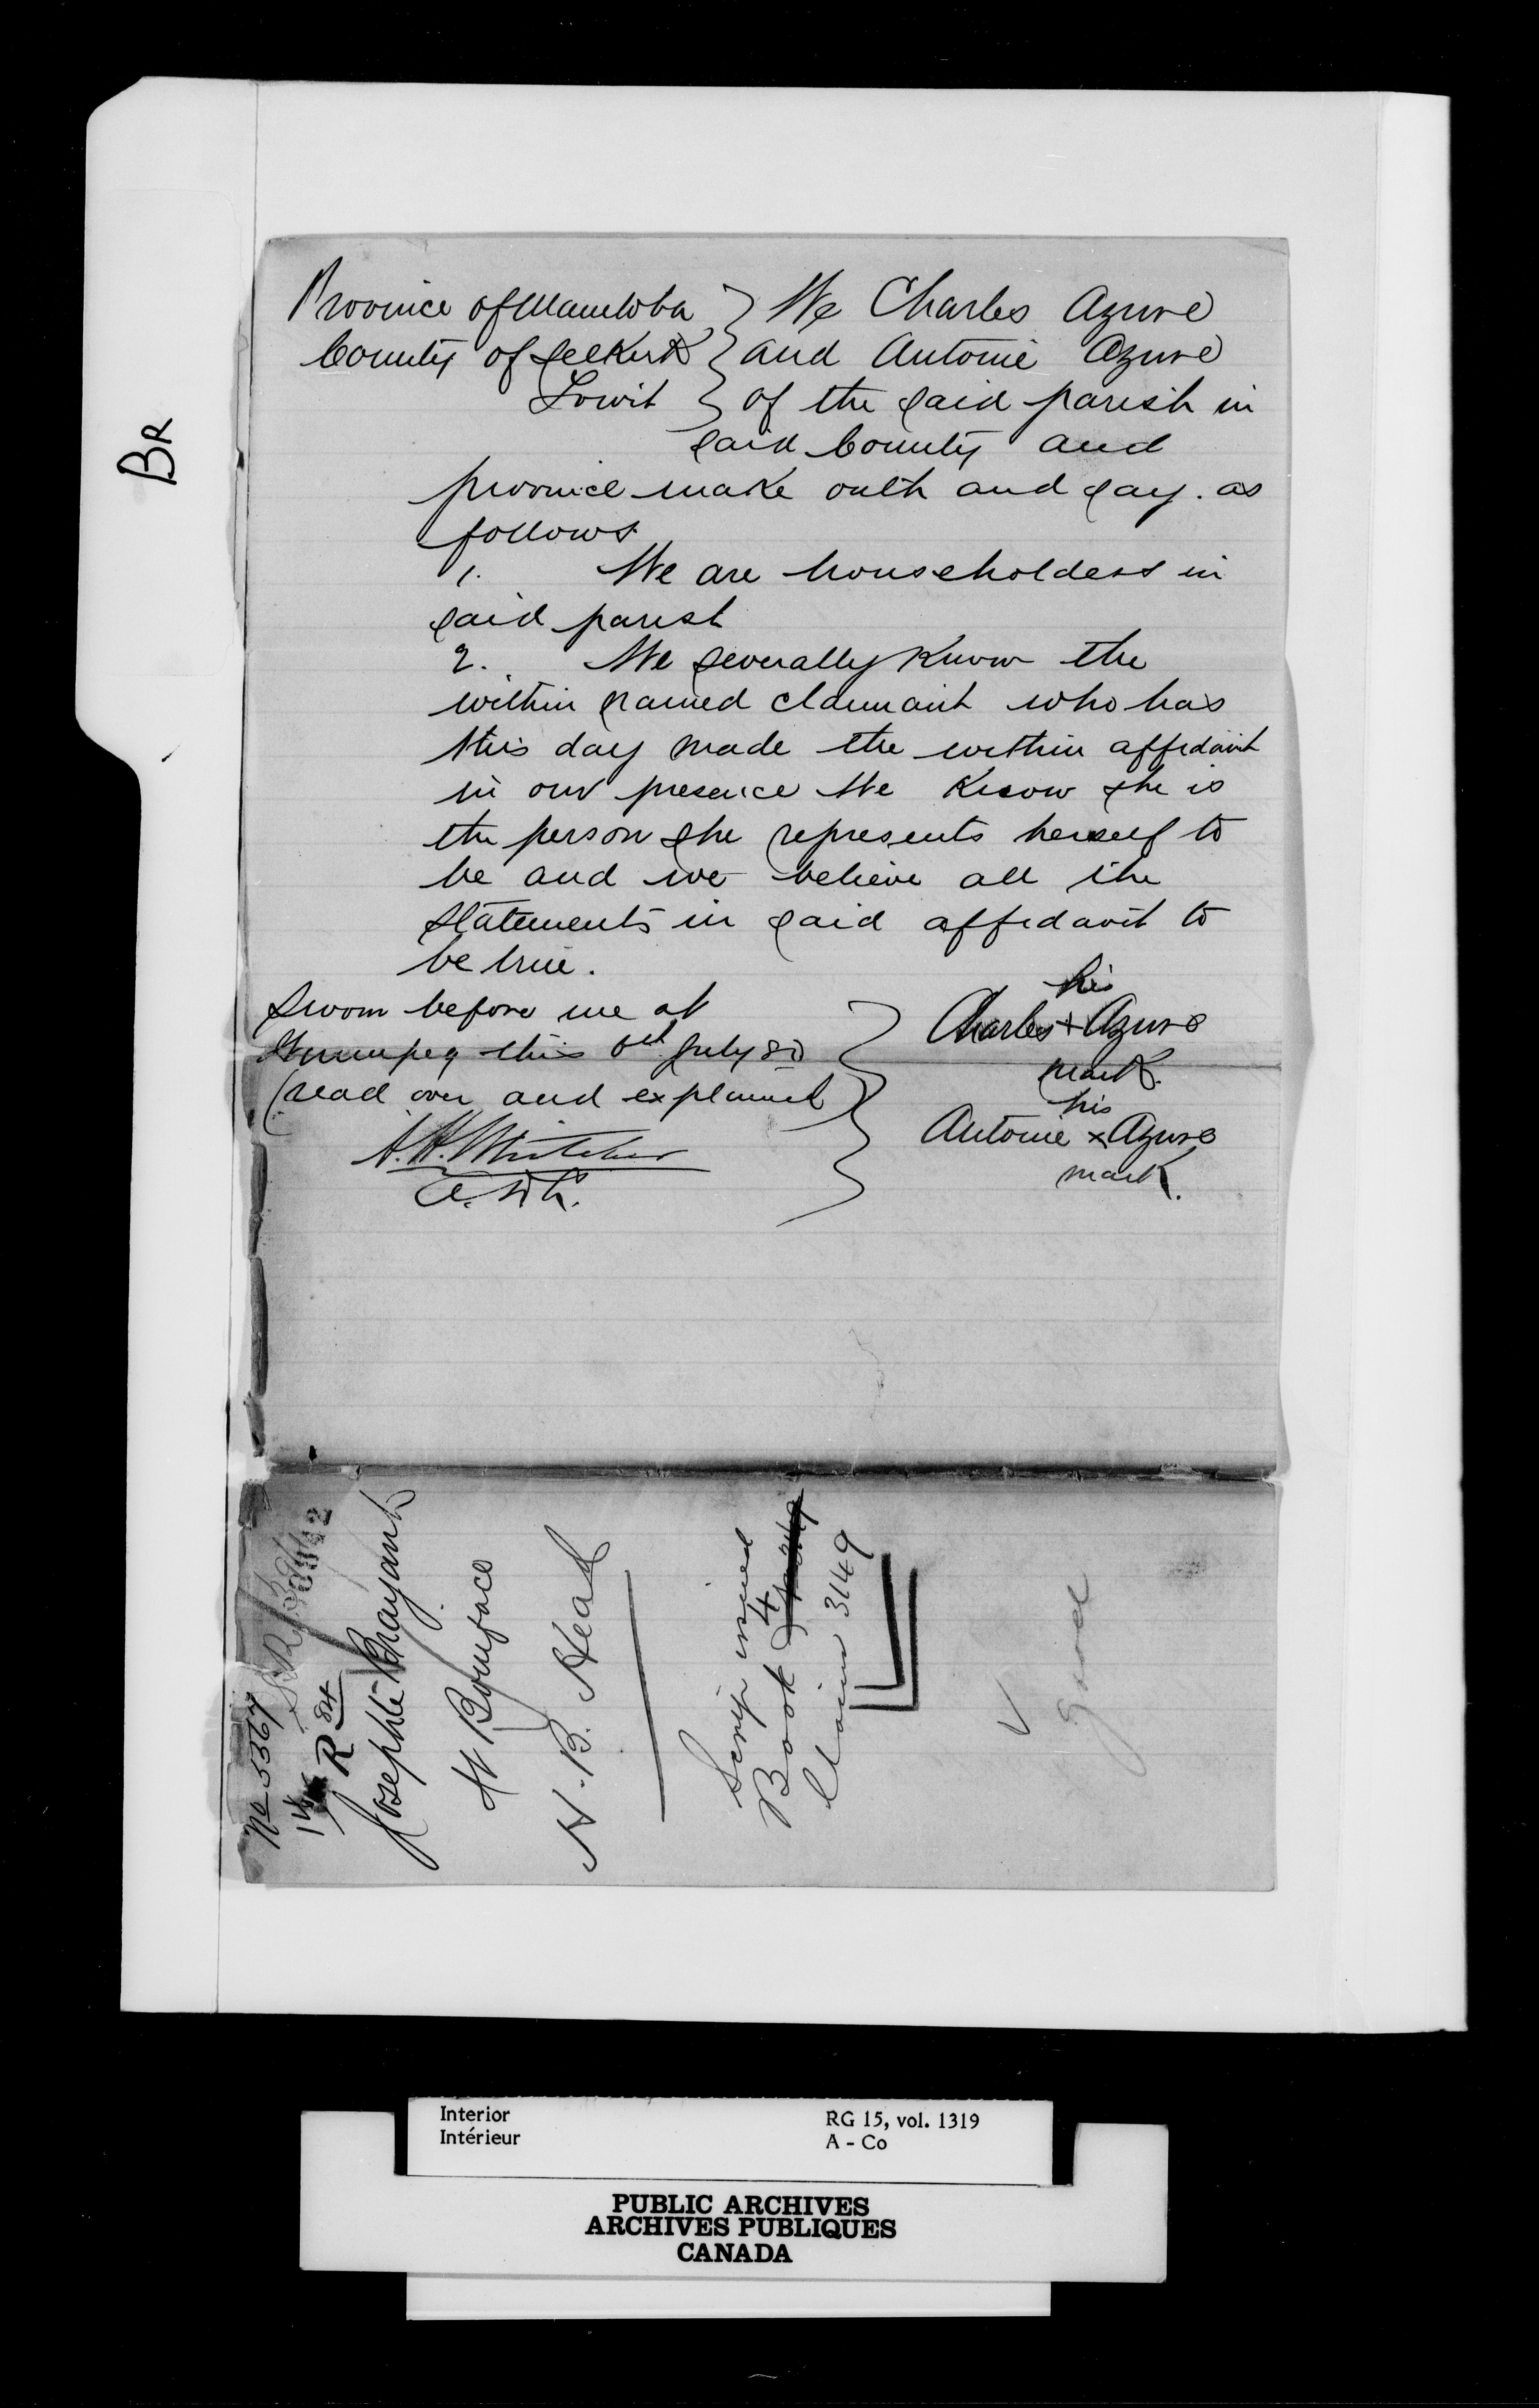 BR
Province of Manitoba } We Charles Azure
County of Selkirk } and Antoine Azure
Towit } of the said parish in
said County and
province make oath and say. as
follows
1. We are householders in
said parish
2. We severally know the
within named claimant who has
this day made the within affidavit
in our presence We know she is
the person she represents herself to
be and we believe all the
statements in said affidavit to
be true.
Sworn before me at
Winnipeg this 6th July 80
(read over and explained)
A.H. Whitcher
his
Charles + Azure
mark.
his
Antoine x Azure
mark.
No 5367
14
R 84
Josephte Brayant
St Boniface
H. B. Head
Scrip issued
Book 4
Claim 3149
good
Interior
Intérieur
RG 15, vol. 1319
A - Co
PUBLIC ARCHIVES
ARCHIVES PUBLIQUES
CANADA